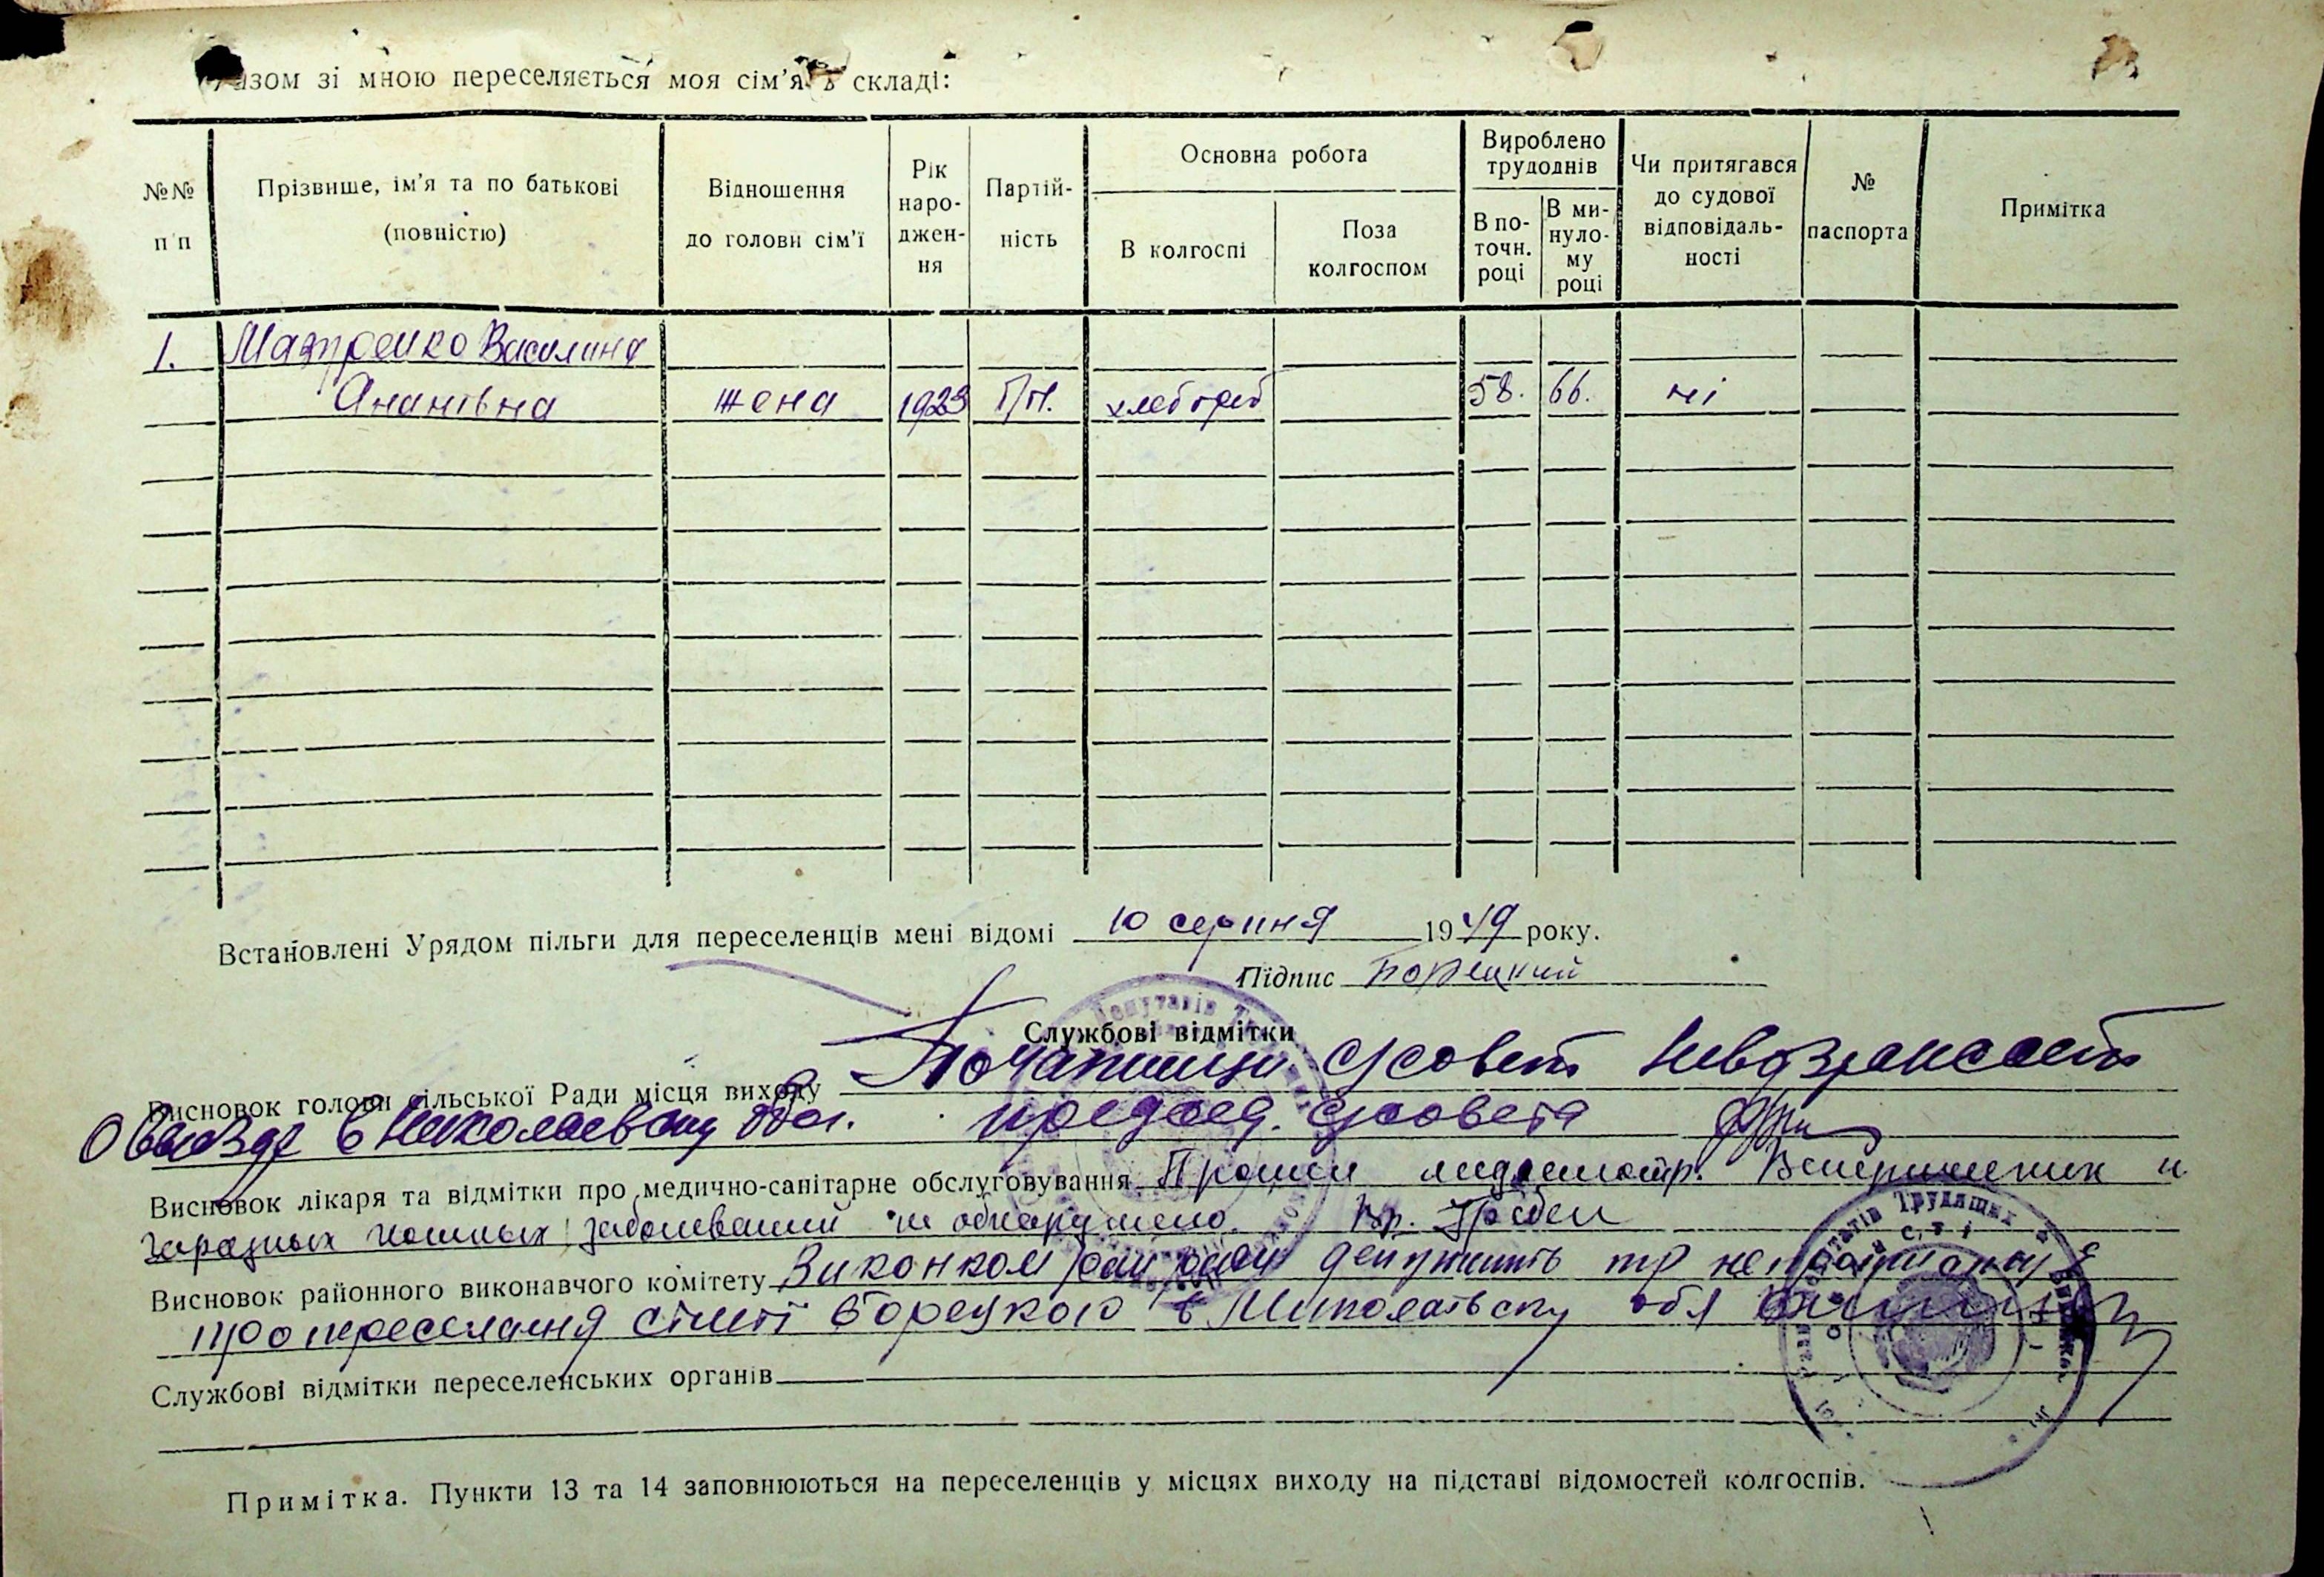 Разом зі мною переселяється моя сім'я в складі:
№№ п п
Прізвище, ім'я та по батькові (повністю)
Відношення до голови сім'ї
Рік народження
Партійність
Основна робота
В колгоспі
Поза колгоспом
Вироблено трудоднів
В поточн. році
В минулому році
Чи притягався до судової відповідальності
№ паспорта
Примітка
1. Василина
Ананівна жена 1923 хлебороб 58. 66. ні
Встановлені Урядом пільги для переселенців мені відомі 10 серпня 1949 року.
Підпис Борецкий
Службові відмітки
Висновок голови сільської Ради місця виходу с/совет невозражает
О выезде в Николаевску обл. председ. с/совета
Висновок лікаря та відмітки про медично-санітарне обслуговування медосмотр. Венерических и
заразных кожных заболеваний не обнаружено.
Висновок районного виконавчого комітету Виконком рай ради депутатів тр
про переселення сімї Борецкого в Миколаївську обл
Службові відмітки переселенських органів
Примітка. Пункти 13 та 14 заповнюються на переселенців у місцях виходу на підставі відомостей колгоспів.